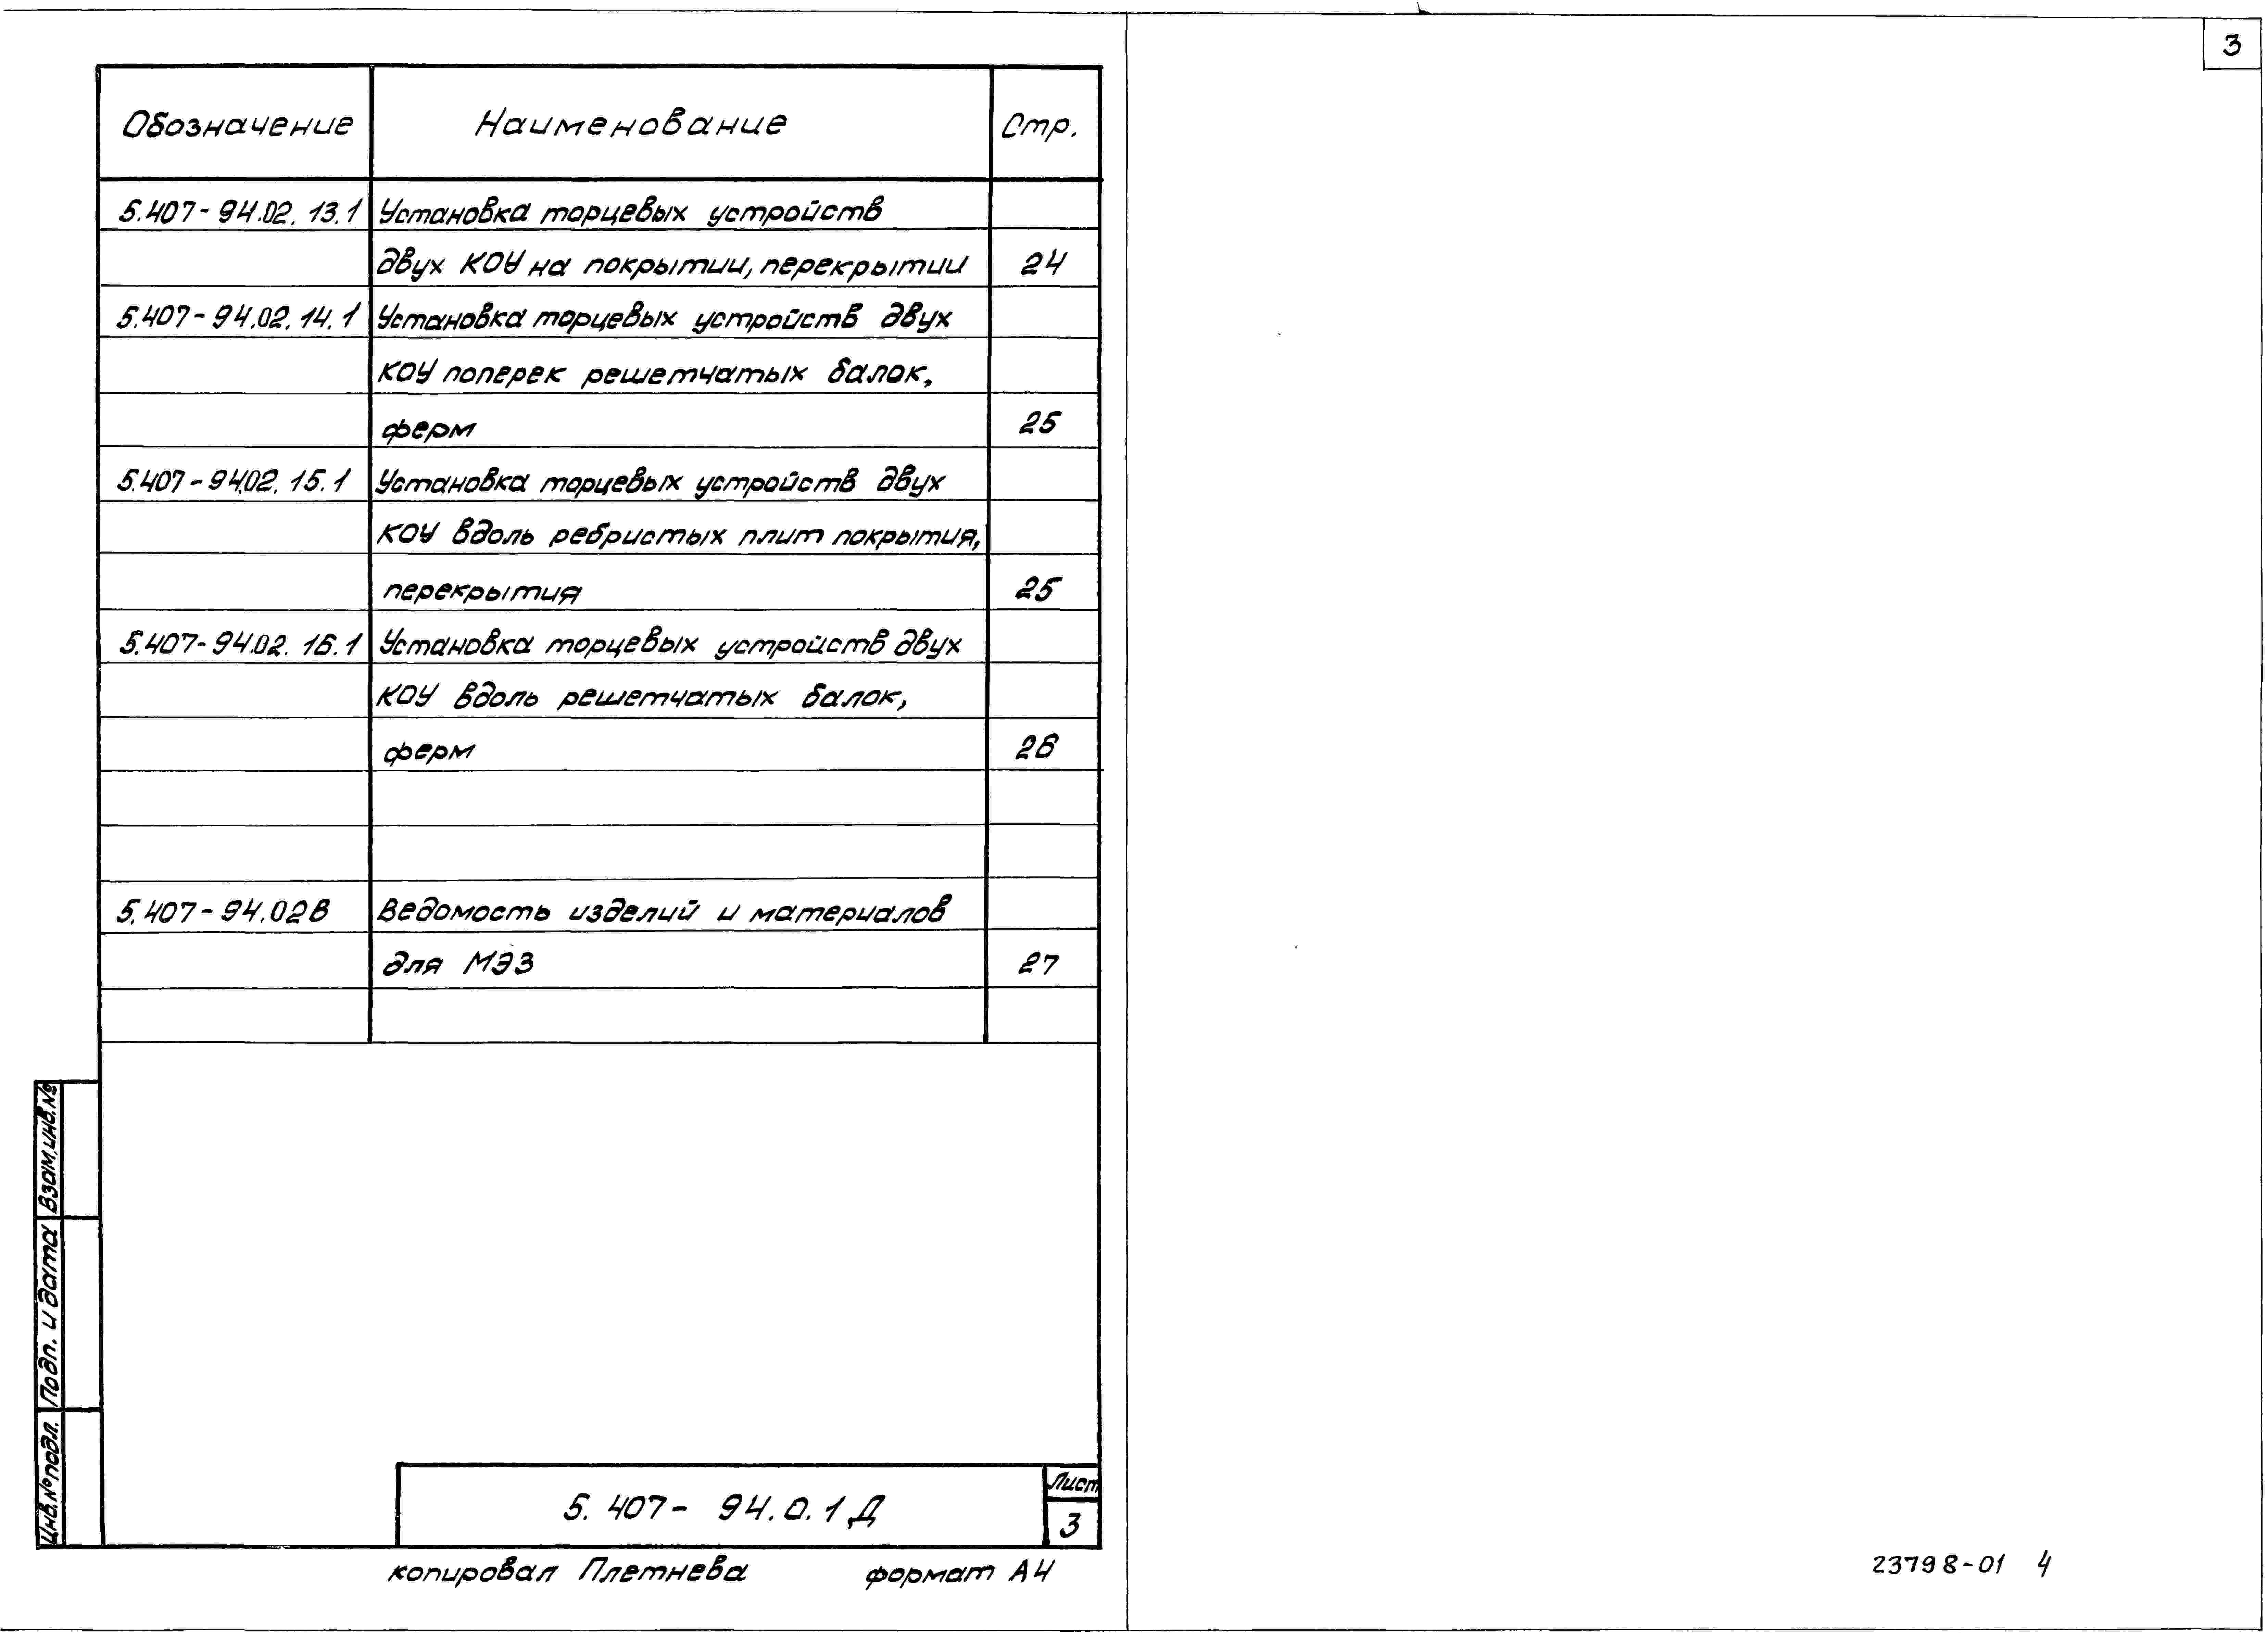 3
Обозначение Наименование Стр.
5.407-94.02.13.1 Установка торцевых устройств
двух КОУ на покрытии, перекрытии 24
5.407-94.02.14.1 Установка торцевых устройств двух
КОУ поперек решетчатых балок,
ферм 25
5.407-94.02.15.1 Установка торцевых устройств двух
КОУ вдоль ребристых плит покрытия,
перекрытия 25
5.407-94.02.16.1 Установка торцевых устройств двух
КОУ вдоль решетчатых балок,
ферм 26
5.407-94.02В Ведомость изделий и материалов
для МЭЗ 27
Взам.инв.№
Подп. и дата
Инв.№подл.
5.407-94.0.1Д
Лист
3
копировал Плетнева формат А4
23798-01 4